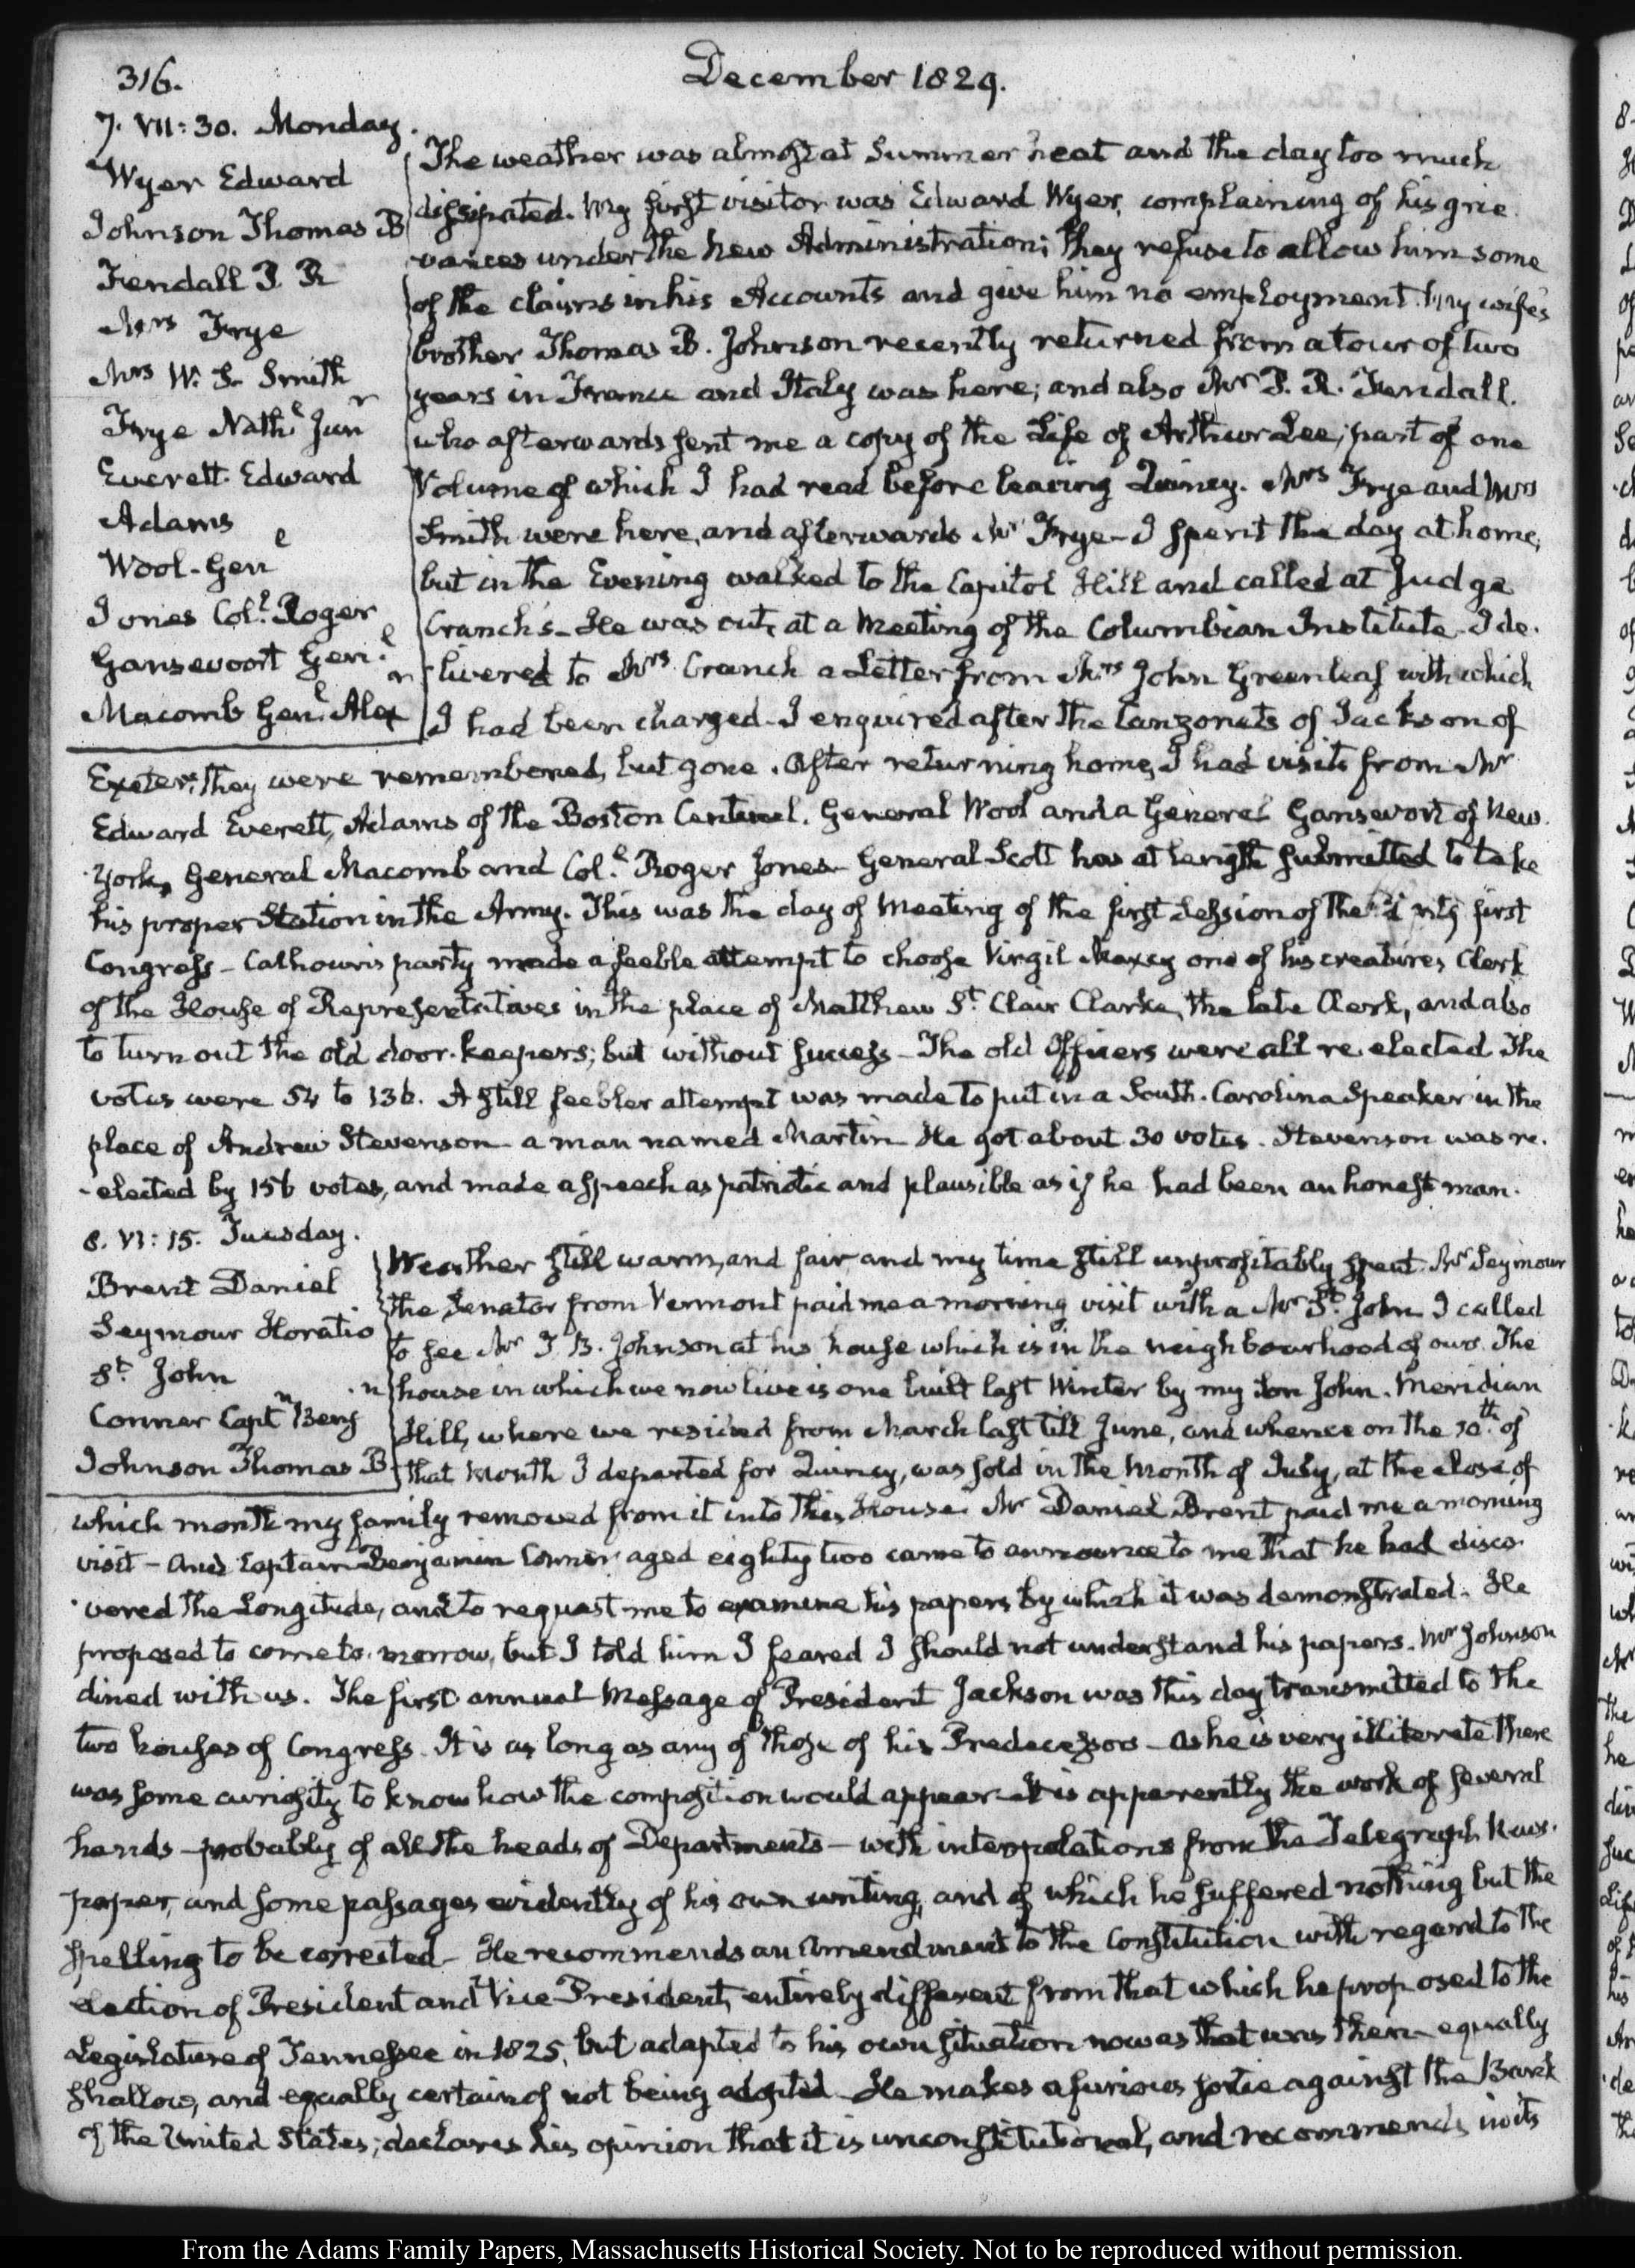 316.
December 1829.
7. VII:30. Monday.
Wyer Edward
Johnson Thomas B
Fendall P. R
Mrs Frye
Mrs W. S. Smith
Frye Nathl Junr
Everett Edward
Adams
Wool - Genl
Jones Coll. Roger
Gansevoort Genl.
Macomb Genl. Alexr
The weather was almost at Summer heat and the day too much
dissipated. My first visitor was Edward Wyer, complaining of his grie-
vances under the new Administration; They refuse to allow him some
of the claims in his Accounts and give him no employment. My wife's
brother Thomas B. Johnson recently returned from a tour of two
years in France and Italy was here; and also Mr P. R. Fendall.
who afterwards sent me a copy of the Life of Arthur Lee; part of one
Volume of which I had read before leaving Quincy. Mrs Frye and Mrs
Smith were here, and afterwards Mr Frye - I spent the day at home,
but in the Evening walked to the Capitol Hill and called at Judge
Cranch's - He was out, at a Meeting of the Columbian Institute - I de-
-livered to Mrs Cranch a Letter from Mrs John Greenleaf with which
I had been charged - I enquired after the Canzonets of Jackson of
Exeter. They were remembered, but gone. After returning home, I had visits from Mr
Edward Everett, Adams of the Boston Centinel. General Wool and a General Gansevort of New-
York, General Macomb and Coll. Roger Jones - General Scott has at length submitted to take
his proper Station in the Army. This was the day of Meeting of the first Session of the first
Congress - Calhoun's party made a feeble attempt to choose Virgil Maxcy one of his creatures, Clerk
of the House of Representatives in the place of Matthew St. Clair Clarke, the late Clerk, and also
to turn out the old door-keepers; but without success - The old Officers were all re elected The
votes were 54 to 136. A still feebler attempt was made to put in a South-Carolina Speaker in the
place of Andrew Stevenson - a man named Martin He got about 30 votes. Stevenson was re-
-elected by 156 votes, and made a speech as patriotic and plausible as if he had been an honest man.
8. VI:15. Tuesday.
Brent Daniel
Seymour Horatio
St. John
Conner Captn Benjn
Johnson Thomas B
Weather still warm, and fair and my time still unprofitably spent. Mr Seymour
the Senator from Vermont paid me a morning visit with a Mr St. John I called
to see Mr T. B. Johnson at his house which is in the neighbourhood of ours. The
house in which we now live is one built last Winter by my Son John. Meridian
Hill, where we resided from March last till June, and whence on the 10th. of
that Month I departed for Quincy, was sold in the Month of July, at the close of
which month my family removed from it into this House. Mr Daniel Brent paid me a morning
visit - And Captain Benjamin Conner aged eighty two came to announce to me that he had disco-
-vered the Longitude, and to request me to examine his papers by which it was demonstrated. He
proposed to come to-morrow, but I told him I feared I should not understand his papers. Mr Johnson
dined with us. The first annual Message of President Jackson was this day transmitted to the
two houses of Congress. It is as long as any of those of his Predecessors - As he is very illiterate there
was some curiosity to know how the composition would appear - It is apparently the work of several
hands - probably of all the heads of Departments - with interpolations from the Telegraph News-
paper, and some passages evidently of his own writing, and of which he suffered nothing but the
spelling to be corrected - He recommends an Amendment to the Constitution with regard to the
election of President and Vice-President, entirely different from that which he proposed to the
Legislature of Tennessee in 1825, but adapted to his own situation now as that was then - equally
shallow, and equally certain of not being adopted - He makes a furious sortie against the Bank
of the United States; declares his opinion that it is unconstitutional, and recommends in its
From the Adams Family Papers, Massachusetts Historical Society. Not to be reproduced without permission.